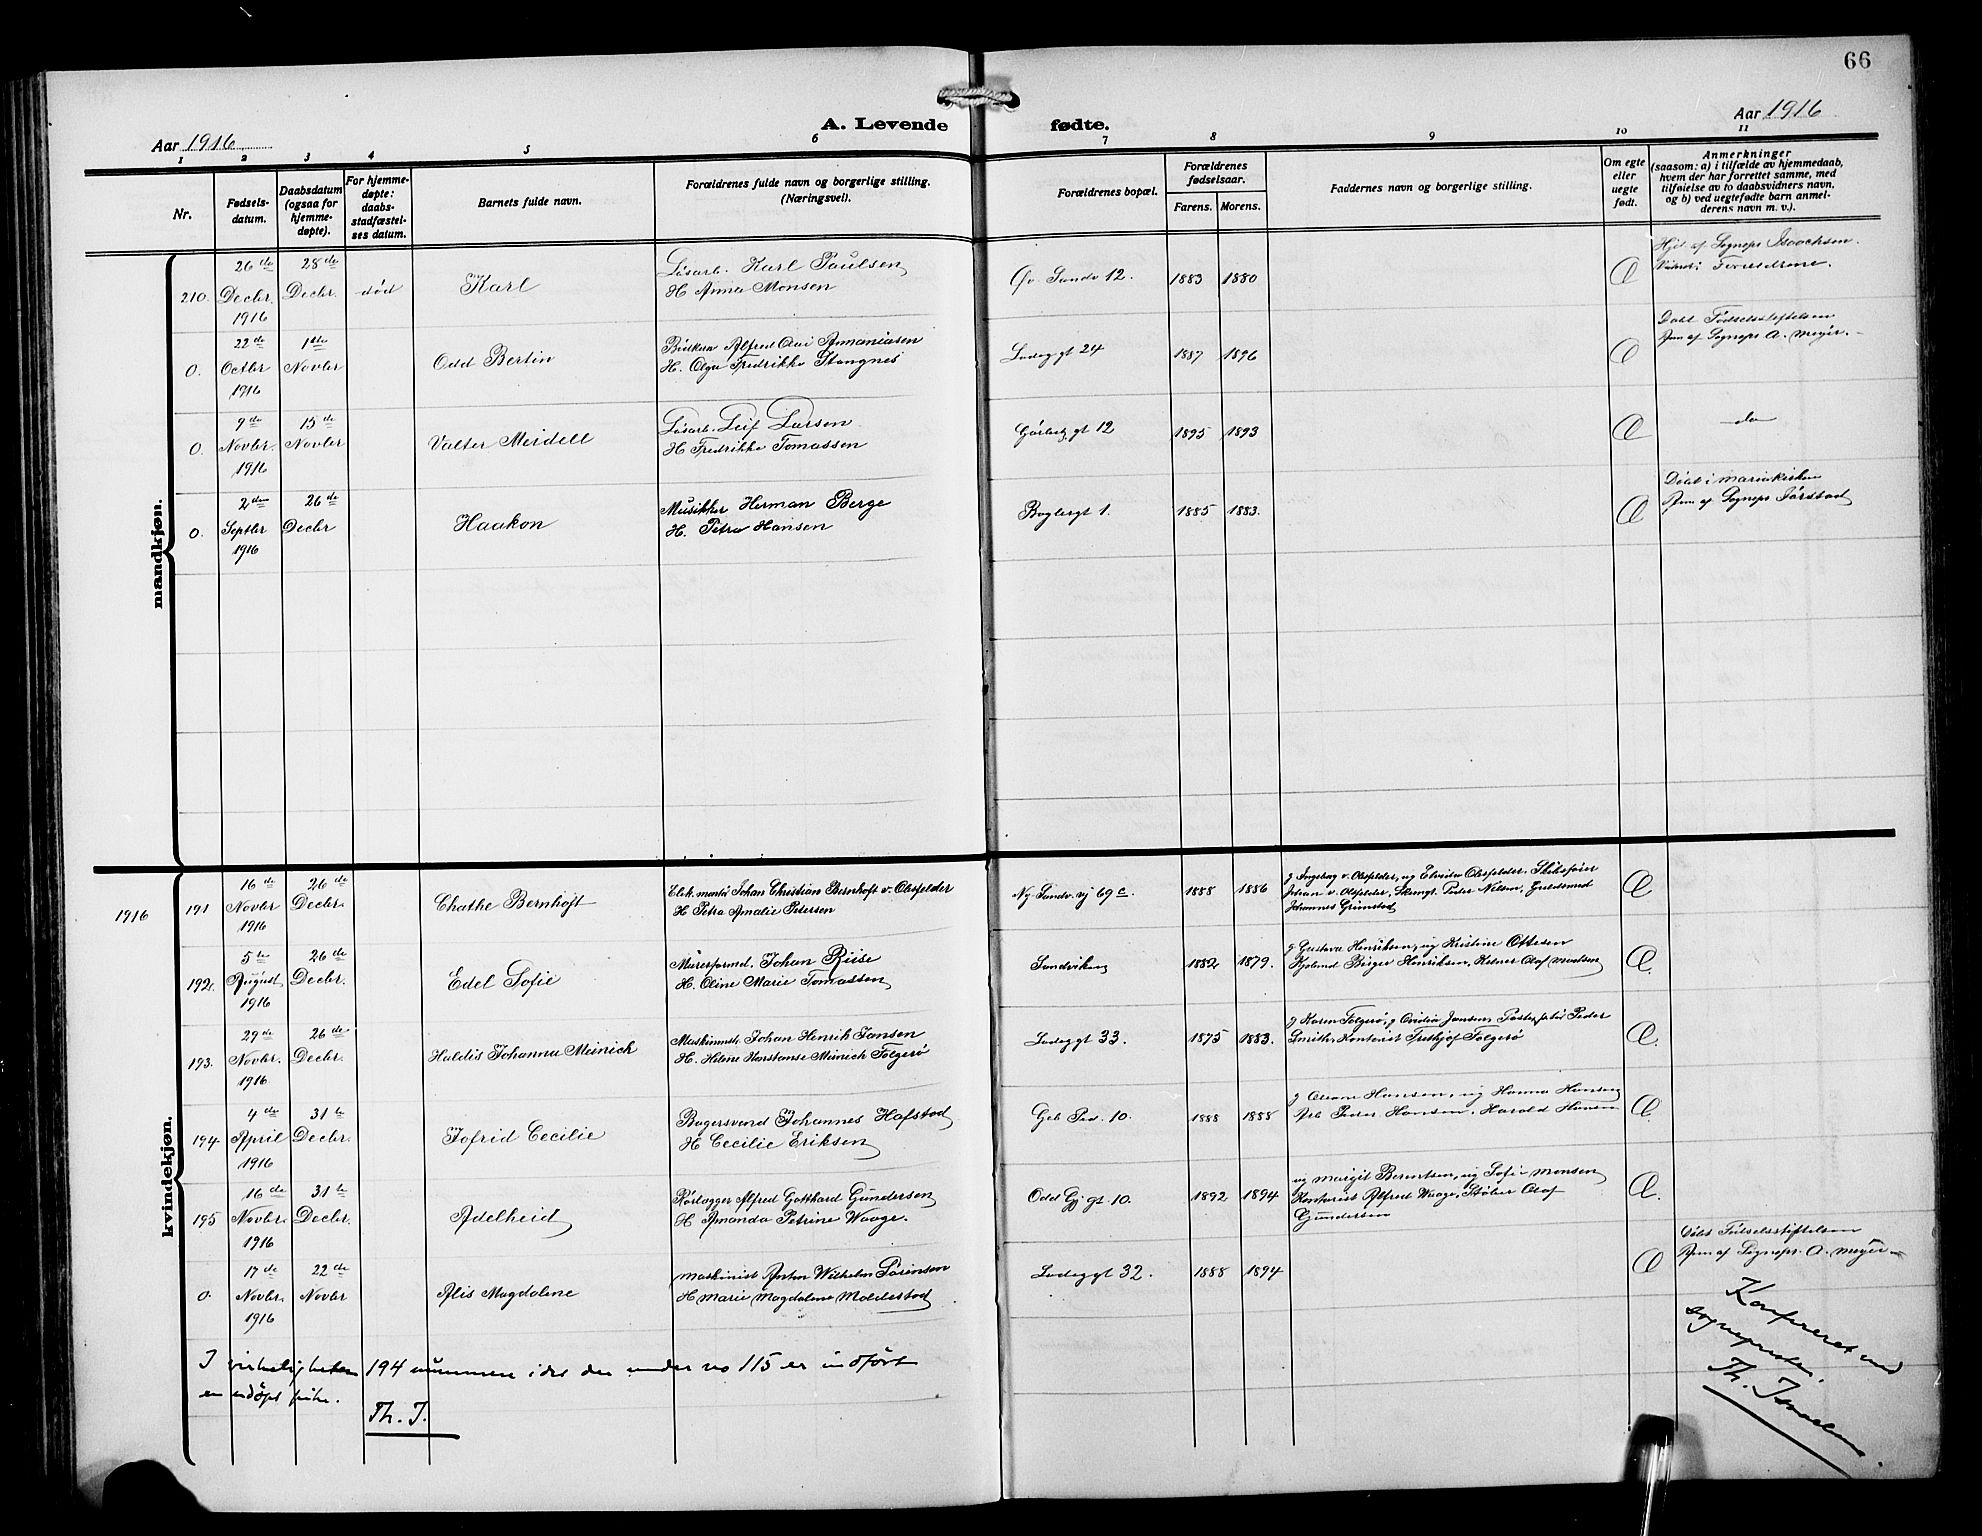 66
A. Levende fødte.
Aar 1916
Aar 1916
1 2 3 4 5 6 7 8 9 10 11
Nr.
Fødsels-
datum.
Daabsdatum
(ogsaa for
hjemme-
døpte).
For hjemme-
døpte:
daabs-
stadfæstel-
ses datum.
Barnets fulde navn.
Forældrenes fulde navn og borgerlige stilling.
(Næringsvei).
Forældrenes bopæl.
Forældrenes
fødselsaar.
Farens. Morens.
Faddernes navn og borgerlige stilling.
Om egte
eller
uegte
født.
Anmerkninger
(saasom: a) i tilfælde av hjemmedaab,
hvem der har forrettet samme, med
tilføielse av to daabsvidners navn,
og b) ved uegtefødte barn anmel-
derens navn m. v.).
mandkjøn.
210. 26de Decbr. 1916 28de Decbr. død Karl
Løsarb. Karl Paulsen
H Anna Monsen
Øv. Sandv 12. 1883 1880 Æ
Hjd. af Sognepr Isaachsen.
0. 22de Octbr 1916 1ste Novbr Odd Bertin
Alfred Olai Ammaniasen
H. Olga Fredrikke Stangnes
Ladeg gt 24 1887 1896 Æ
Døbt Fødselsstiftelsen
Anm af Sognepr A. Meyer.
0. 9de Novbr. 1916 15de Novbr Valter Meidell
Løsarb. Leif Larsen
H Fredrikke Tomassen
gt 12 1895 1893 Æ
do
0. 2den Septbr 1916 26de Decbr Haakon
Musikker Herman Berge
H. Petra Hansen
Baglergt 1. 1885 1883. Æ
Døbt i Mariakirken
Anm af Sognepr Jørstad
kvindekjøn.
1916
191 16de Novbr 1916 26de Decbr. Chathe Bernhoft
Elek. montø Johan Christian Bernhoft v. Olsfelder
H Petra Amalie Petersen
Ny. Sandv. vj 69c. 1888 1886 Æ
g Ingeborg v. Olsfelder, ug Elvida Olsfelder Skibsfører
Johan v. Olsfelder, Peder Nilsen, Guldsmed
Johannes Grimstad
192. 5te August 1916 26de Decbr. Edel Sofie
Murerformd. Johan Riise
H. Oline Marie Tomassen
Sandviken 1882 1879. Æ.
g Gustava Henriksen, ug Kristine Ottesen
Birger Henriksen, Kelner Olaf Madsen
193. 29de Novbr. 1916 26de Decbr. Haldis Johanna Meinich
Maskinmstr Johan Henrik Jansen
H. Helene Konstanse Meinich Folgerø
Ladeg gt 33. 1875 1883. Æ.
g Karen Folgerø, g Ovidia Jansen, Peder
Smith, Kontorist Frithjof Folgerø
194 4de April 1916 31te Decbr. Jofrid Cecilie
Bagersvend Johannes Hafstad
H Cecilie Eriksen
Geb Ped. 10. 1888 1888 Æ
g Oleane Hansen, ug Hanna Hansen
Arb Peder Hansen, Harald Hansen
195 16de Novbr. 1916 31te Decbr. Adelheid
Rørlægger Alfred Gotthard Gundersen
H Amanda Petrine Waage.
Odd Gj gt 10. 1892 1894 Æ.
ug Margit Berentsen, ug Sofie Monsen
Kontorist Alfred Waage, Støber Olaf
Gundersen
0. 17de Novbr. 1916 22de Novbr Alis Magdalene
Maskinist Anton Wilhelm Sørensen
H Marie Magdalene Moldestad
Ladeg gt 32. 1888 1894 Æ
Døbt Fødselsstiftelsen
Anm af Sognepr. A. Meyer
I virkeligheten 194 nummere, idet der under no 115 er indført
en udøpt pike.
Th. I.
Konfereret med
sogneprestens.